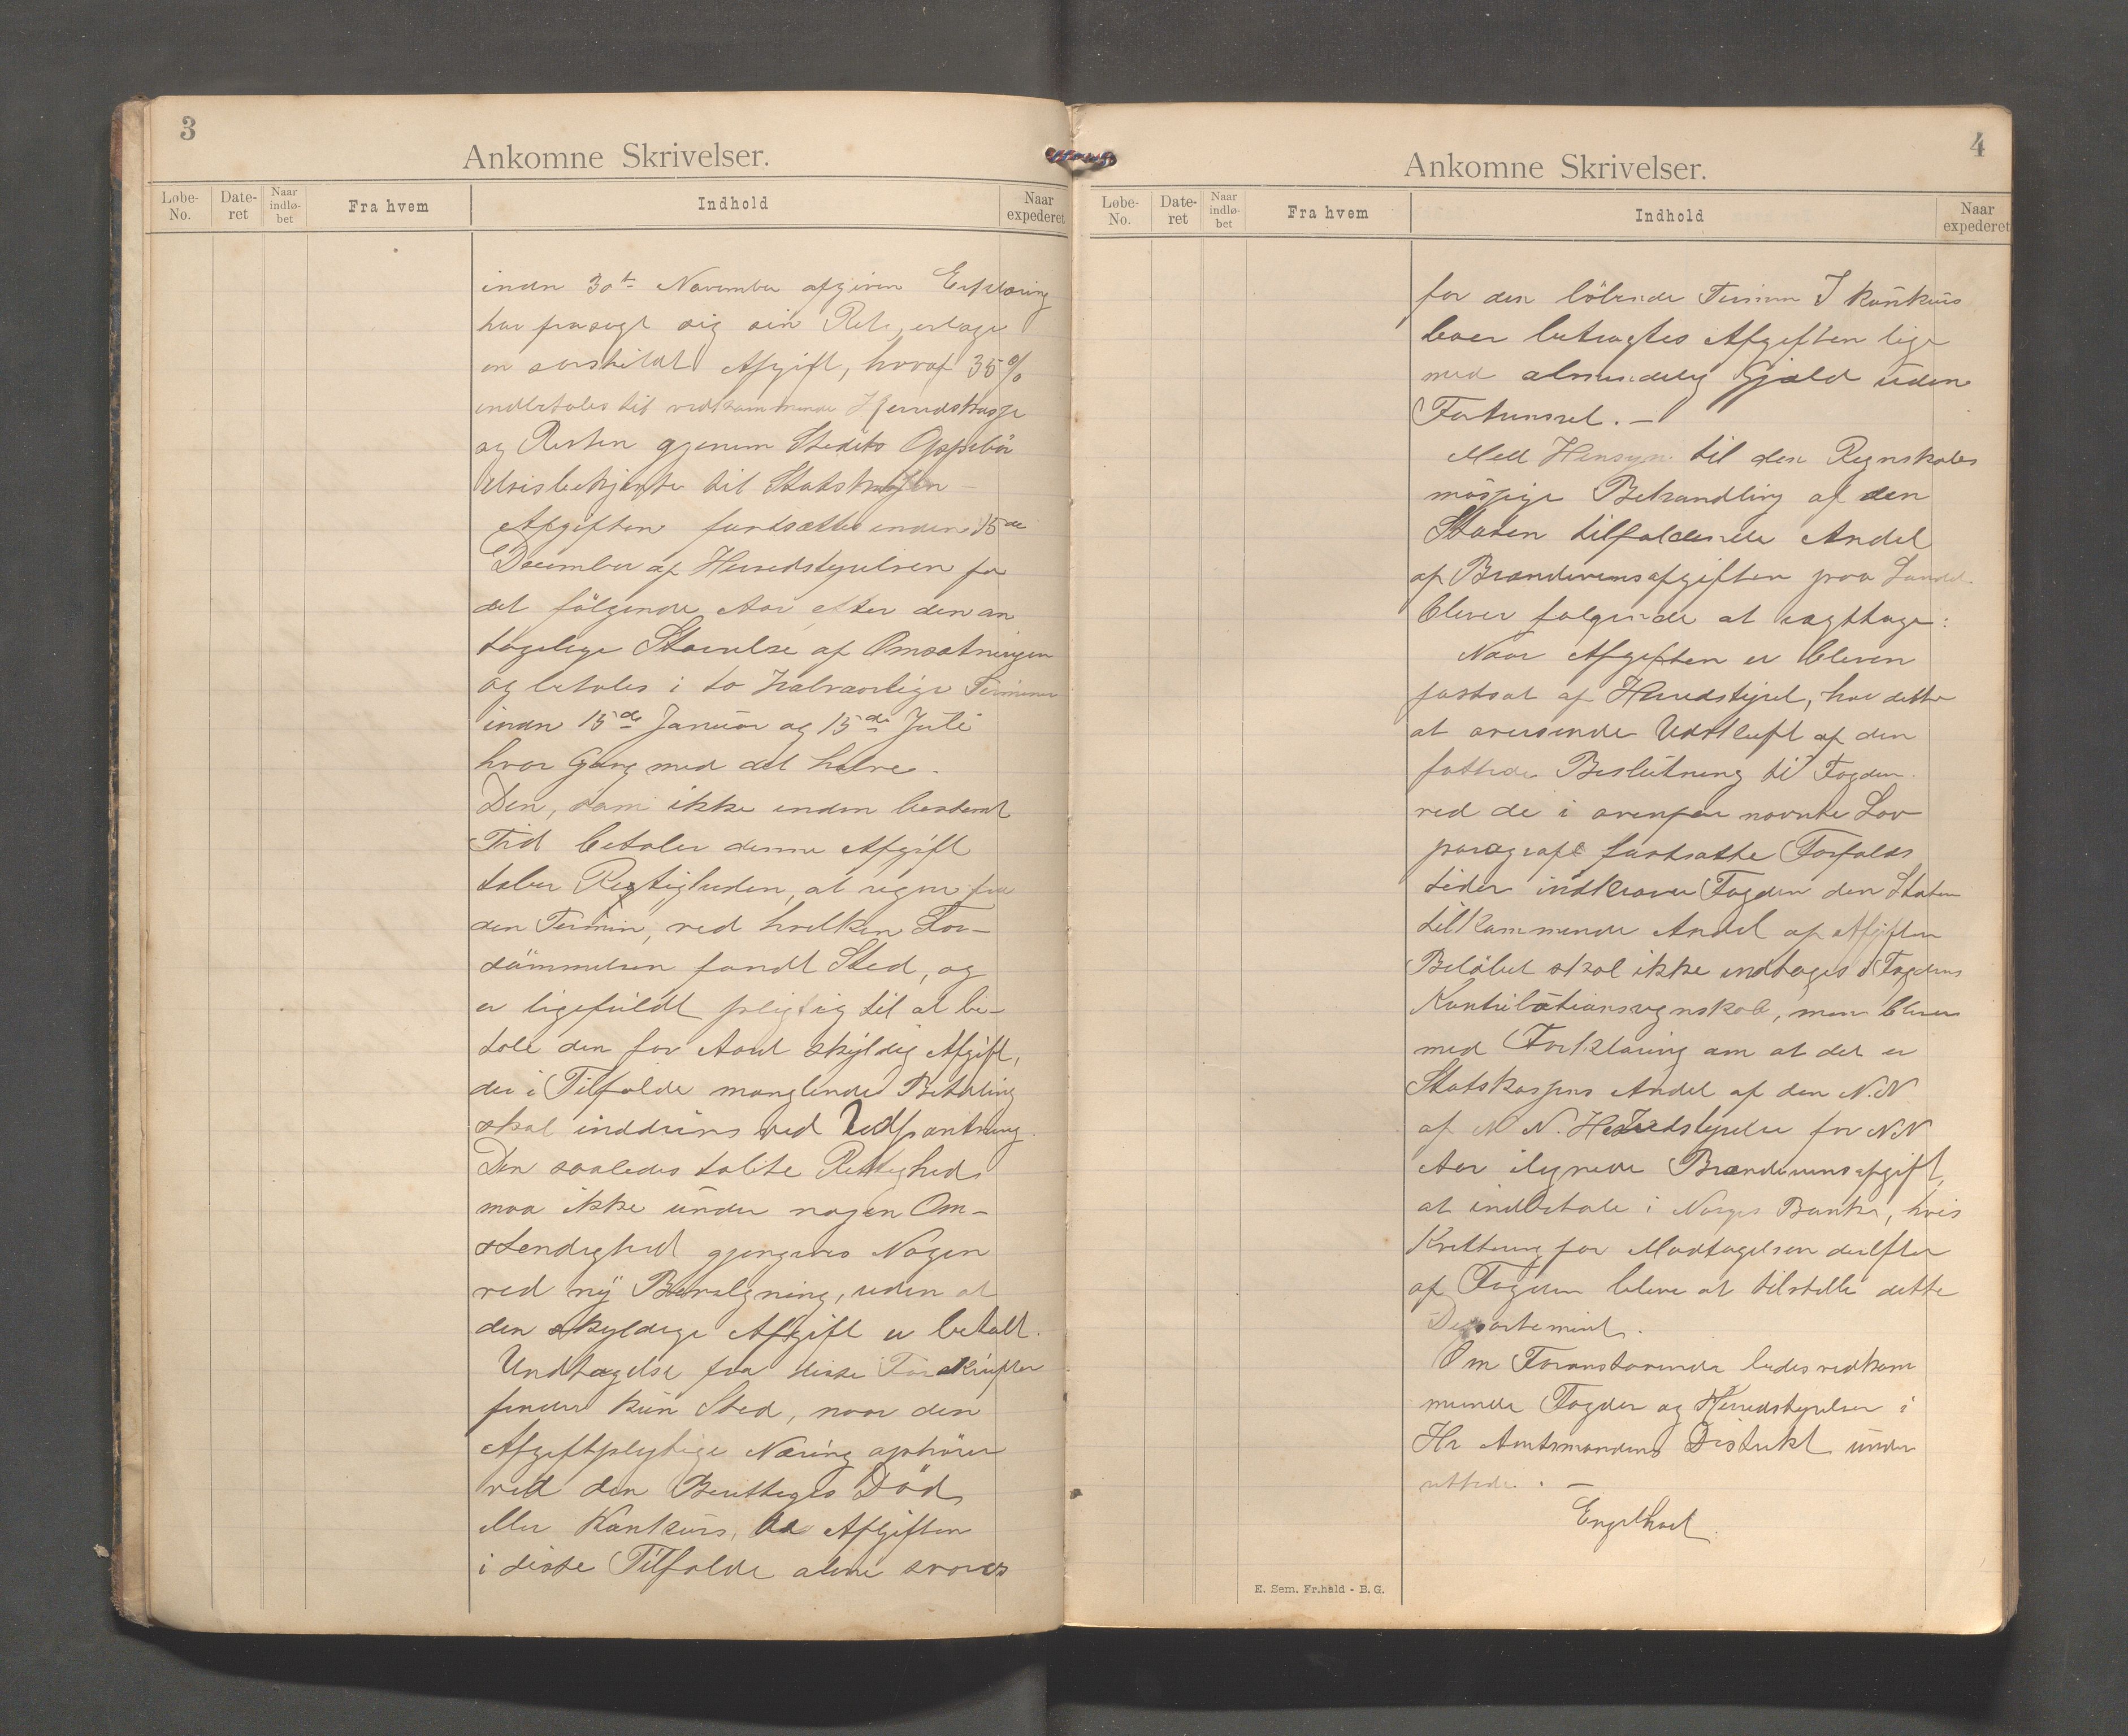 3
Ankomne Skrivelser.
Løbe-No. Date-ret Naar indlø-bet Fra hvem Indhold Naar expederet
inden 30te November afgiven Erklæring
har frasagt sig sin Ret, erlage
en særskildt Afgift, hvoraf 35%
indbetales til vedkommende Herredskasse
og Resten gjenem Stedets Oppebör
elsisbetjente til Statskassen –
Afgiften fastsættes inden 15de
December af Herredstyrelsen for
det fölgende Aar efter den an
tagelige Störrelse af Omsætningen
og betales i to halvaarlige Terminer
inden 15de Januar og 15de Juli
hver Gang med det halve.
Den, som ikke inden bestemt
Tid betaler denne Afgift
taber Regtigheden, at regne fra
den Termin, ved hvilken For–
sömmelsen fandt Sted, og
er ligefuldt pligtig til at be–
tale den for Aaret skyldig Afgift,
der i Tilfælde manglende Betaling
skal inddrives ved Udpantning.
Den saaledes tabte Rettighed
maa ikke under nogen Om–
stendighed gjengives Nogen
ved ny Bevilgning, uden at
den skyldige Afgift er betalt.
Undtagelse fra disse Forskrifter
finder kun Sted, naar den
Afgiftplygtige Næring ophörer
ved den Berettiges Död
eller Konkurs, da Afgiften
i disse Tilfælde alene svares
4
Ankomne Skrivelser.
Løbe-No. Date-ret Naar indlø-bet Fra hvem Indhold Naar expederet
for den löbende Termin I konkurs
boer betragtes Afgiften lige
med almindelig Gjæld uden
Fortrinsret. –
Med Hensyn til den Regnskabs
mæssige Behandling af den
Staten tilfaldende Andel
af Brændevinsafgiften paa Landet
bliver følgende at iagttage:
Naar Afgiften er bleven
fastsat af Herredstyret, har dette
at oversende Udskrift af den
fattede Beslutning til Fogden.
ved de i ovenfor nævnte Lov
paragraf fastsatte Forfalds
tider indkræver Fogden den Staten
tilkommende Andel af Afgiften
Belöbet skal ikke indtages i Fogdens
Kontributionsregnskab, men bliver
med Forklaring om at det er
Statskassens Andel af den N.N
af N N. Herredstyrelse for N.N
Aar ilignede Brændevinsafgift,
at indbetale i Norges Bank, hvis
Kvittering for Modtagelsen derefter
af Fogden bliver at tilstille dette
Departement.
Om Foranstaaende bedes vedkom
mende Fogder og Herredstyrelser i
Hr Amtmandens Distrikt under
rettede. –
Engelhart.
E. Sem. Fr.hald - B. G.